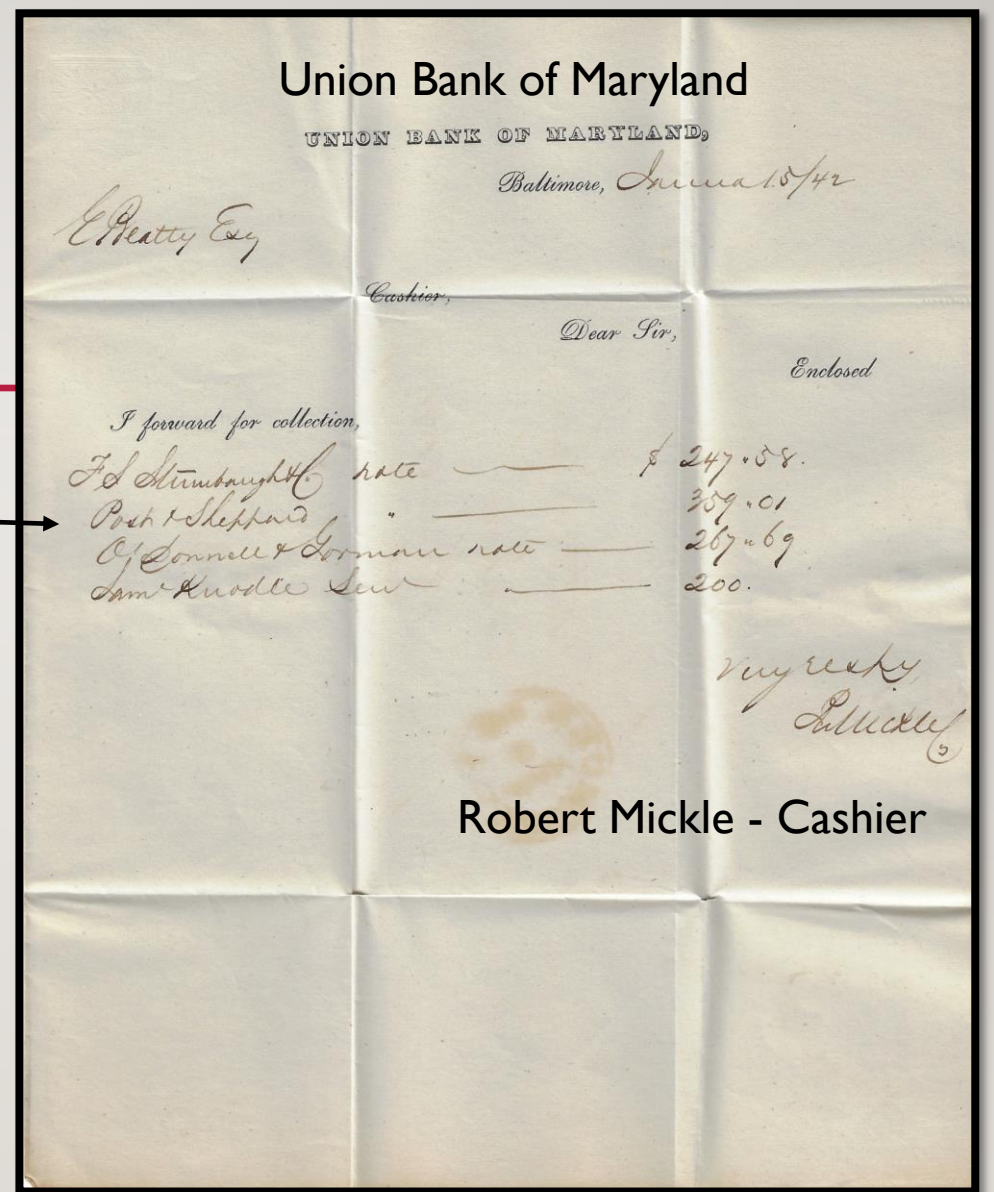 Union Bank of Maryland
UNION BANK OF MARYLAND,
Baltimore, Janua 15/42
E Beatty Esq
Cashier,
Dear Sir,
Enclosed
I forward for collection,
F S Stumbaugh & C note $ 247.58.
Post & Sheppard " 359.01
O'Donnell & Gorman note 267.69
Saml Knodle 200.
Very resply
R Mickle C
Robert Mickle - Cashier